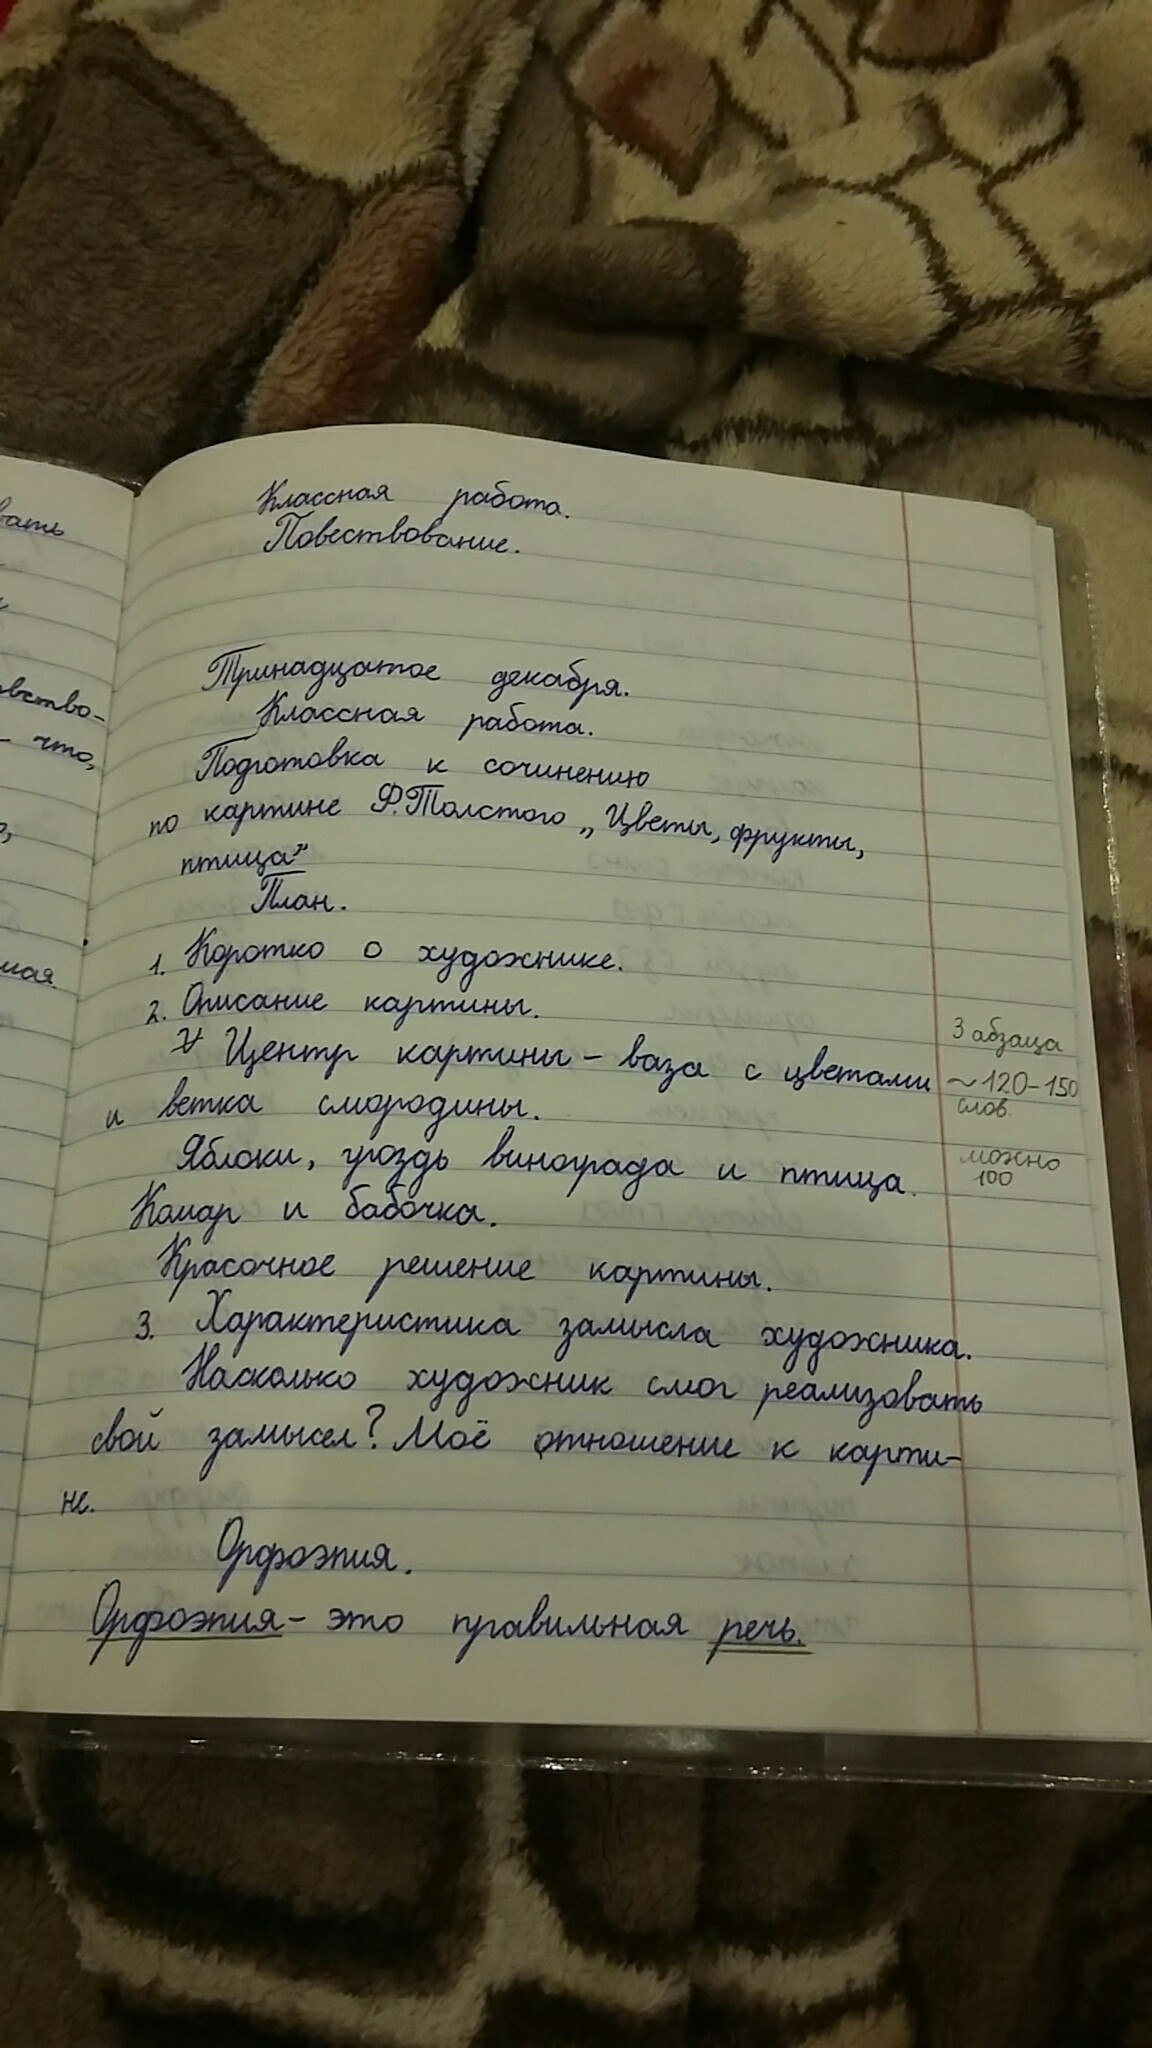 Классная работа.
Повествование.
Тринадцатое декабря.
Классная работа.
Подготовка к сочинению
по картине Ф.Толстого „Цветы, фрукты,
птица"
План.
1. Коротко о художнике.
2. Описание картины.
Центр картины – ваза с цветами
и ветка смородины.
3 абзаца
~ 120-150
слов.
можно
100
Яблоки, гроздь винограда и птица.
Комар и бабочка.
Красочное решение картины.
3. Характеристика замысла художника.
Насколько художник смог реализовать
свой замысел? Моё отношение к карти-
не.
Орфоэпия.
Орфоэпия – это правильная речь.
вать
- что,